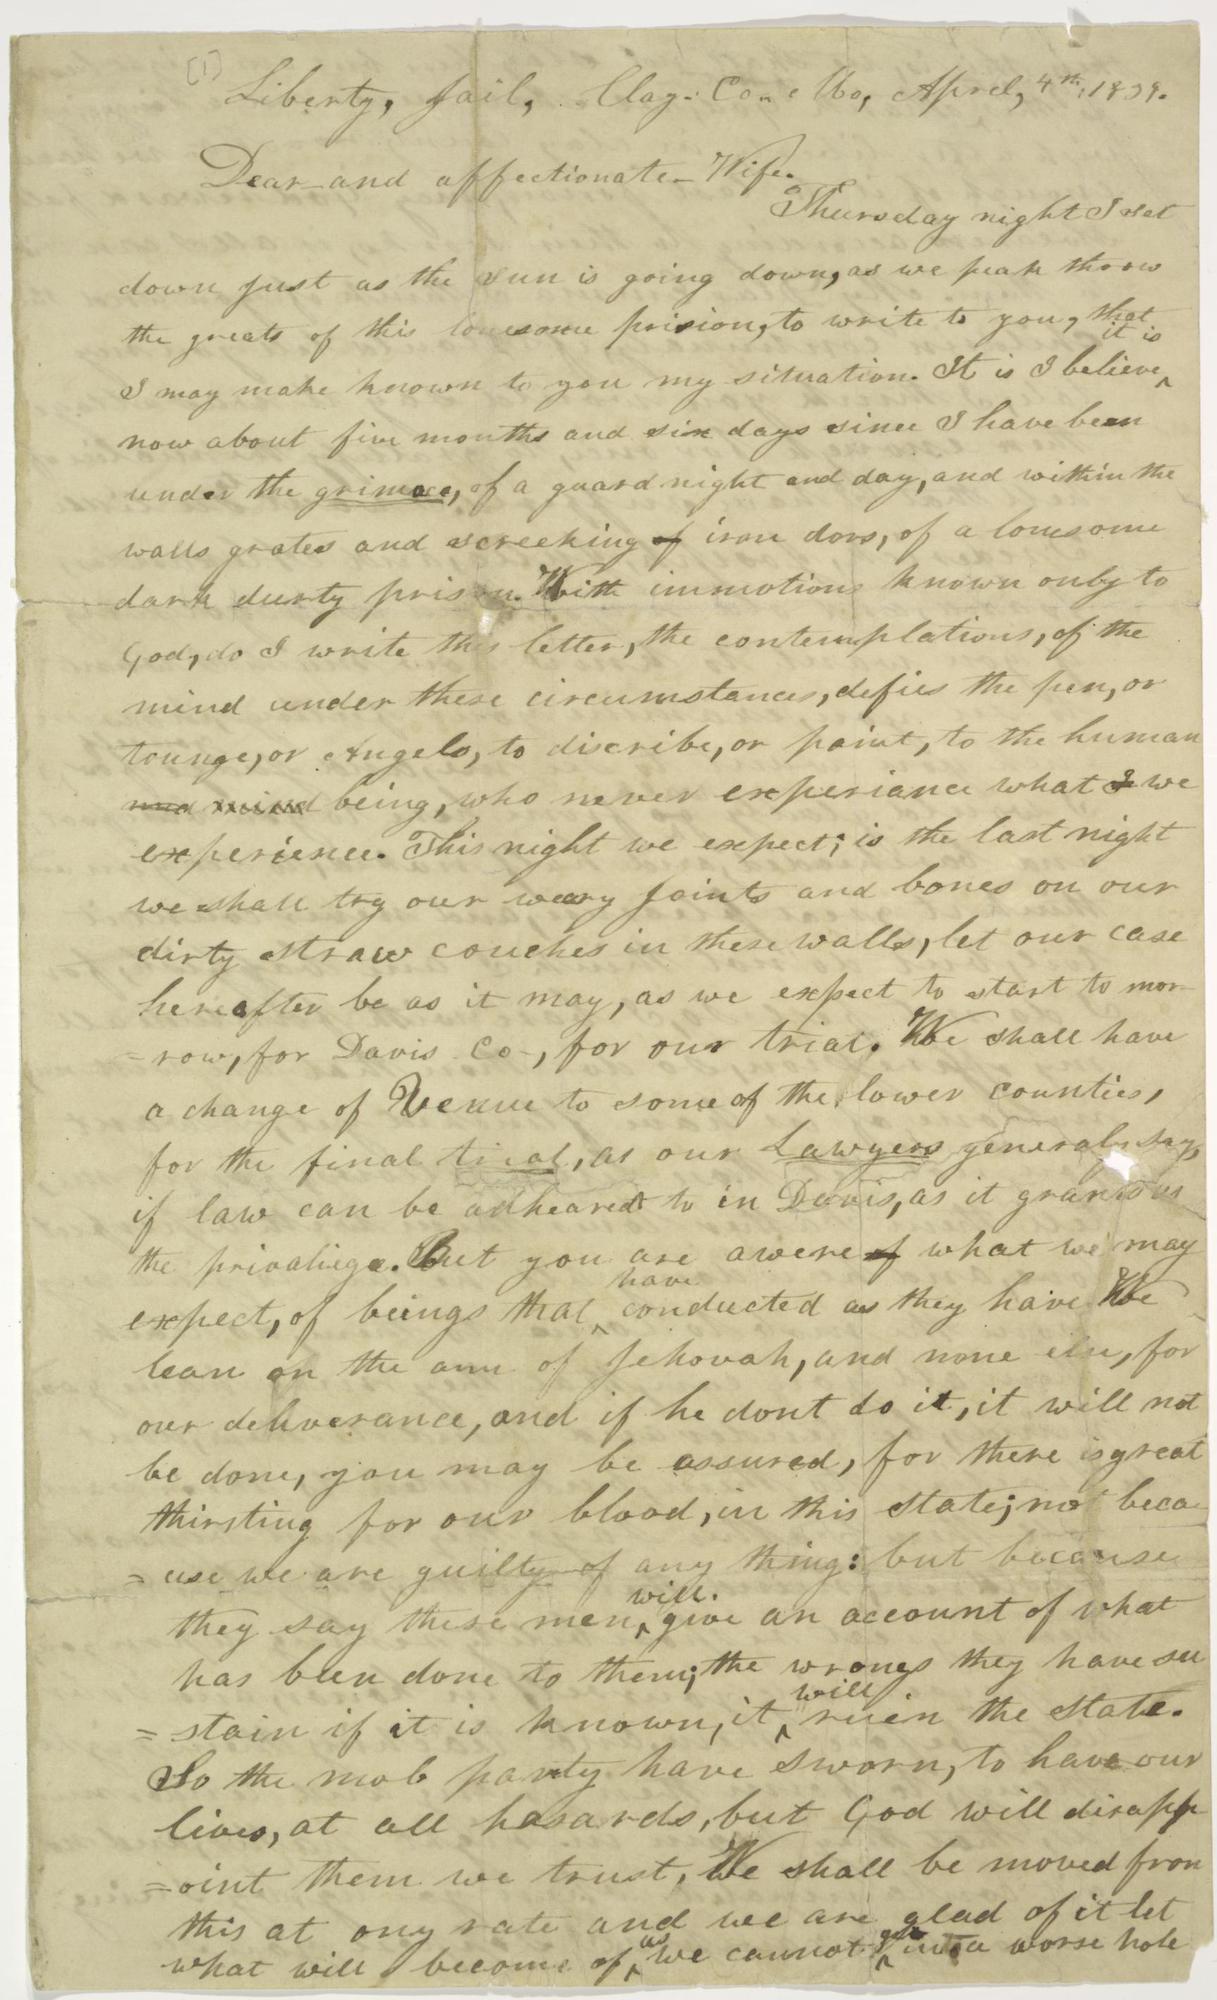 [1]
Liberty, Jail, Clay. Co. Mo, April, 4th, 1839.
Dear and affectionate Wife.
Thursday night I set
down just as the sun is going down, as we peak throw
the greats of this lonesome prision, to write to you, that
I may make known to you my situation. It is I believe ^it is
now about five months and six days since I have been
under the grimace, of a guard night and day, and within the
walls grates and screeking of iron dors, of a lonesome
dark durty prison. With immotions known only to
God, do I write this letter, the contemplations, of the
mind under these circumstances, defies the pen, or
tounge, or Angels, to discribe, or paint, to the human
mind being, who never experiance what I we
experience. This night we expect; is the last night
we shall try our weary Joints and bones on our
dirty straw couches in these walls, let our case
hereafter be as it may, as we expect to start to mor-
=row, for Davis Co-, for our trial. We shall have
a change of Venue to some of the lower counties,
for the final trial, as our Lawyers generaly say,
if law can be adheared to in Davis, as it grants us
the privaliege. But you are awere of what we may
expect, of beings that ^have conducted as they have We
lean on the arm of Jehovah, and none else, for
our deliverance, and if he dont do it, it will not
be done, you may be assured, for there is great
thirsting for our blood, in this state; not beca
=use we are guilty of any thing: but because
they say these men ^will. give an account of what
has been done to them; the wrongs they have su
=stain if it is known, it ^will ruein the State.
So the mob party have sworn, to have our
lives, at all hasards, but God will disapp
=oint them we trust, We shall be moved from
this at any rate and we are glad of it let
what will become of ^us we cannot ^get into a worse hole